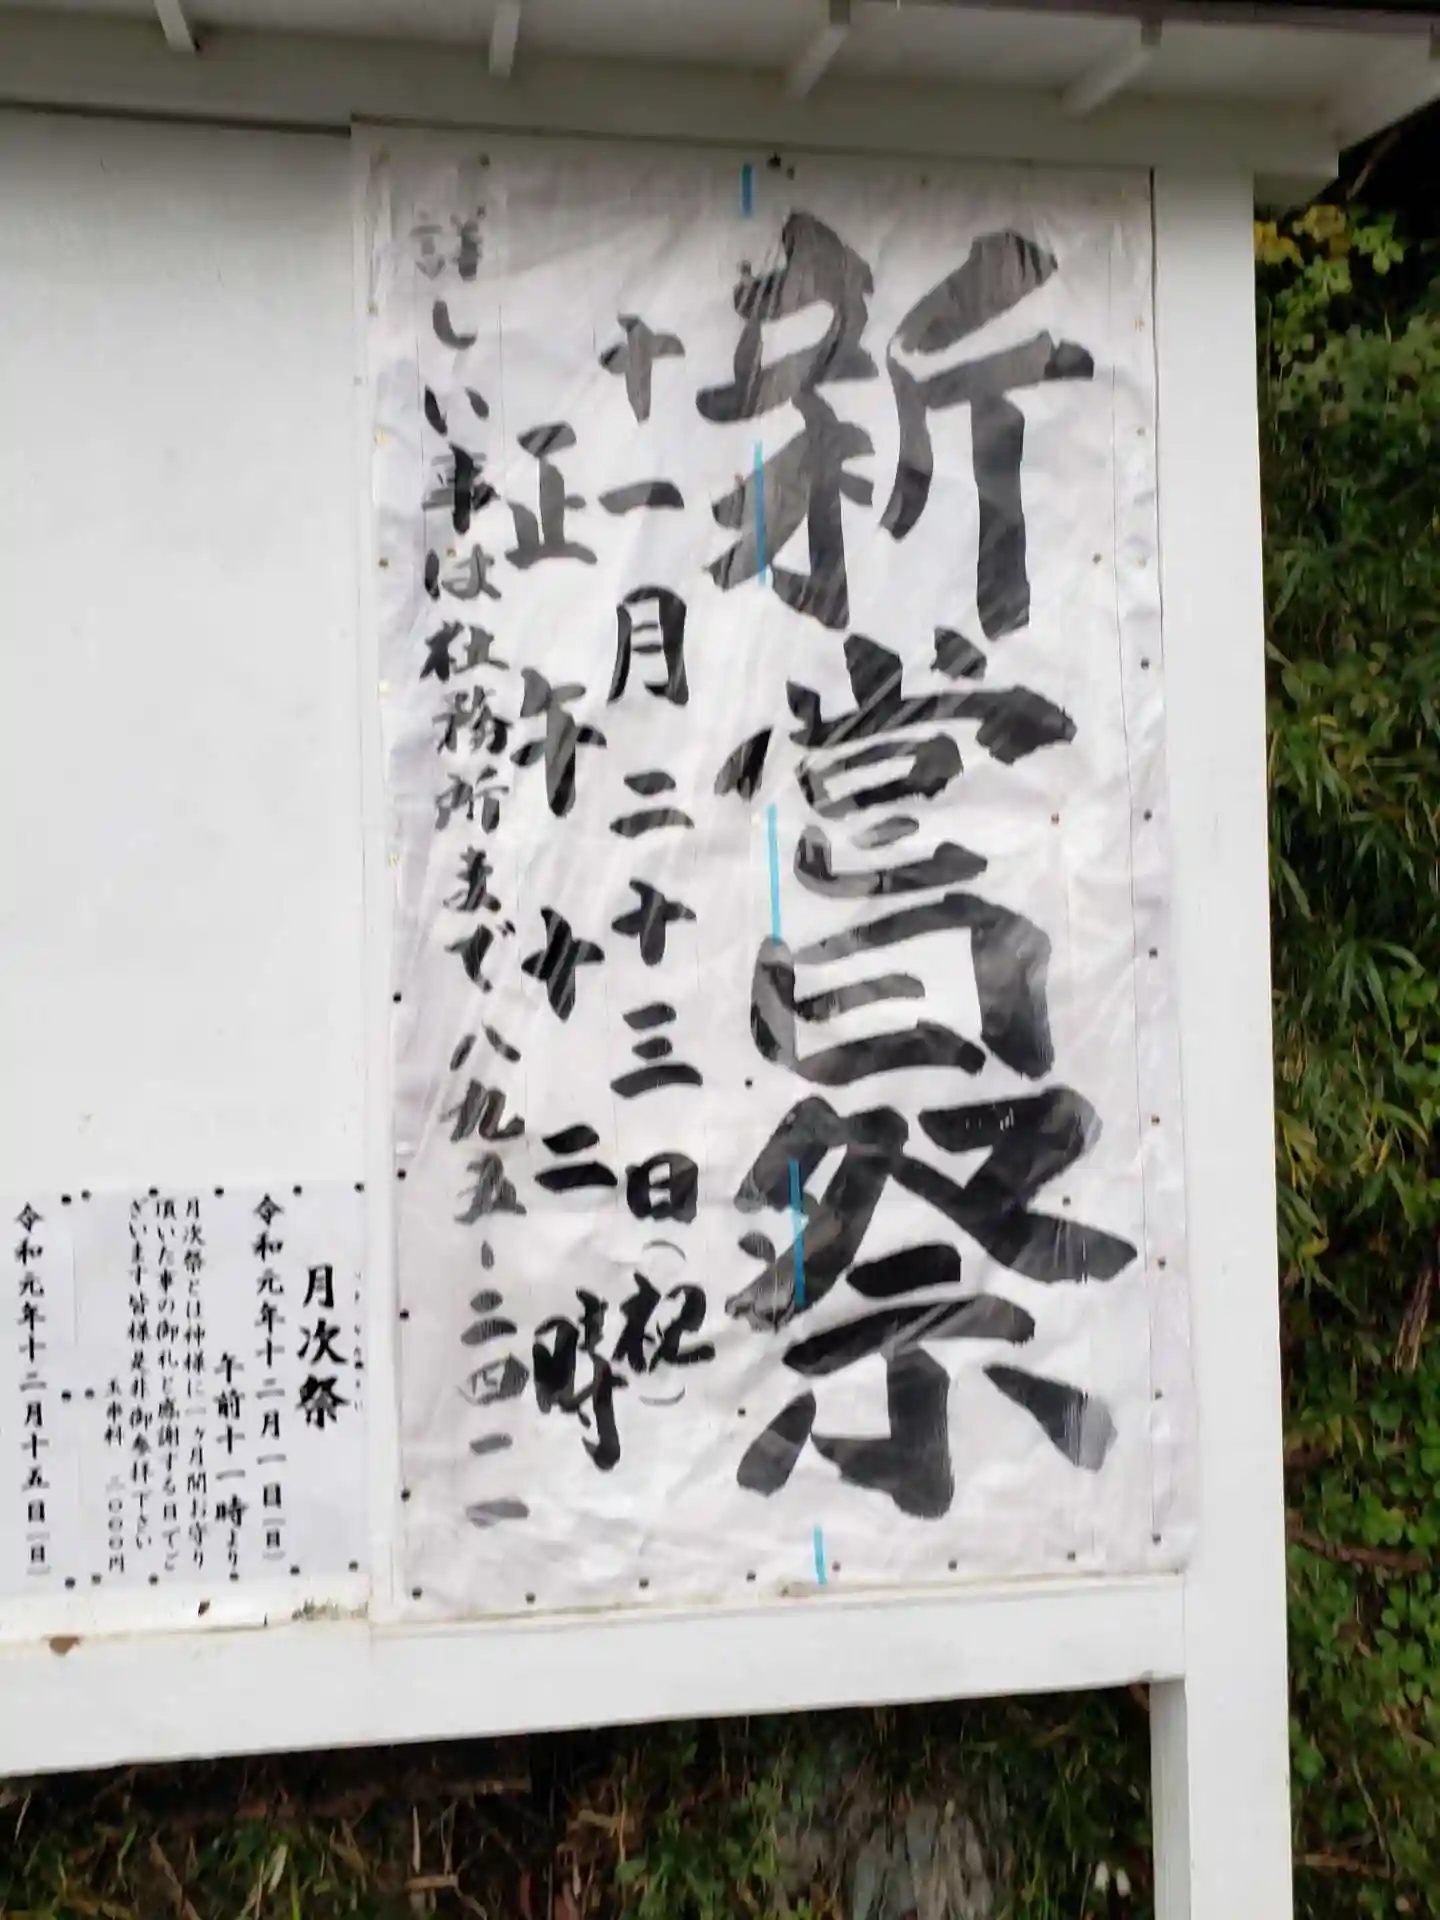 新嘗祭
十一月二十三日(祝)
正午十二時
詳しい事は社務所まで八九五-二四一一
月次祭
令和元年十二月一日(日)
午前十一時より
月次祭とは神様に一ヶ月間お守り
頂いた事の御礼と感謝する日でご
ざいます皆様是非御参拝下さい
玉串料 二〇〇〇円
令和元年十二月十五日(日)